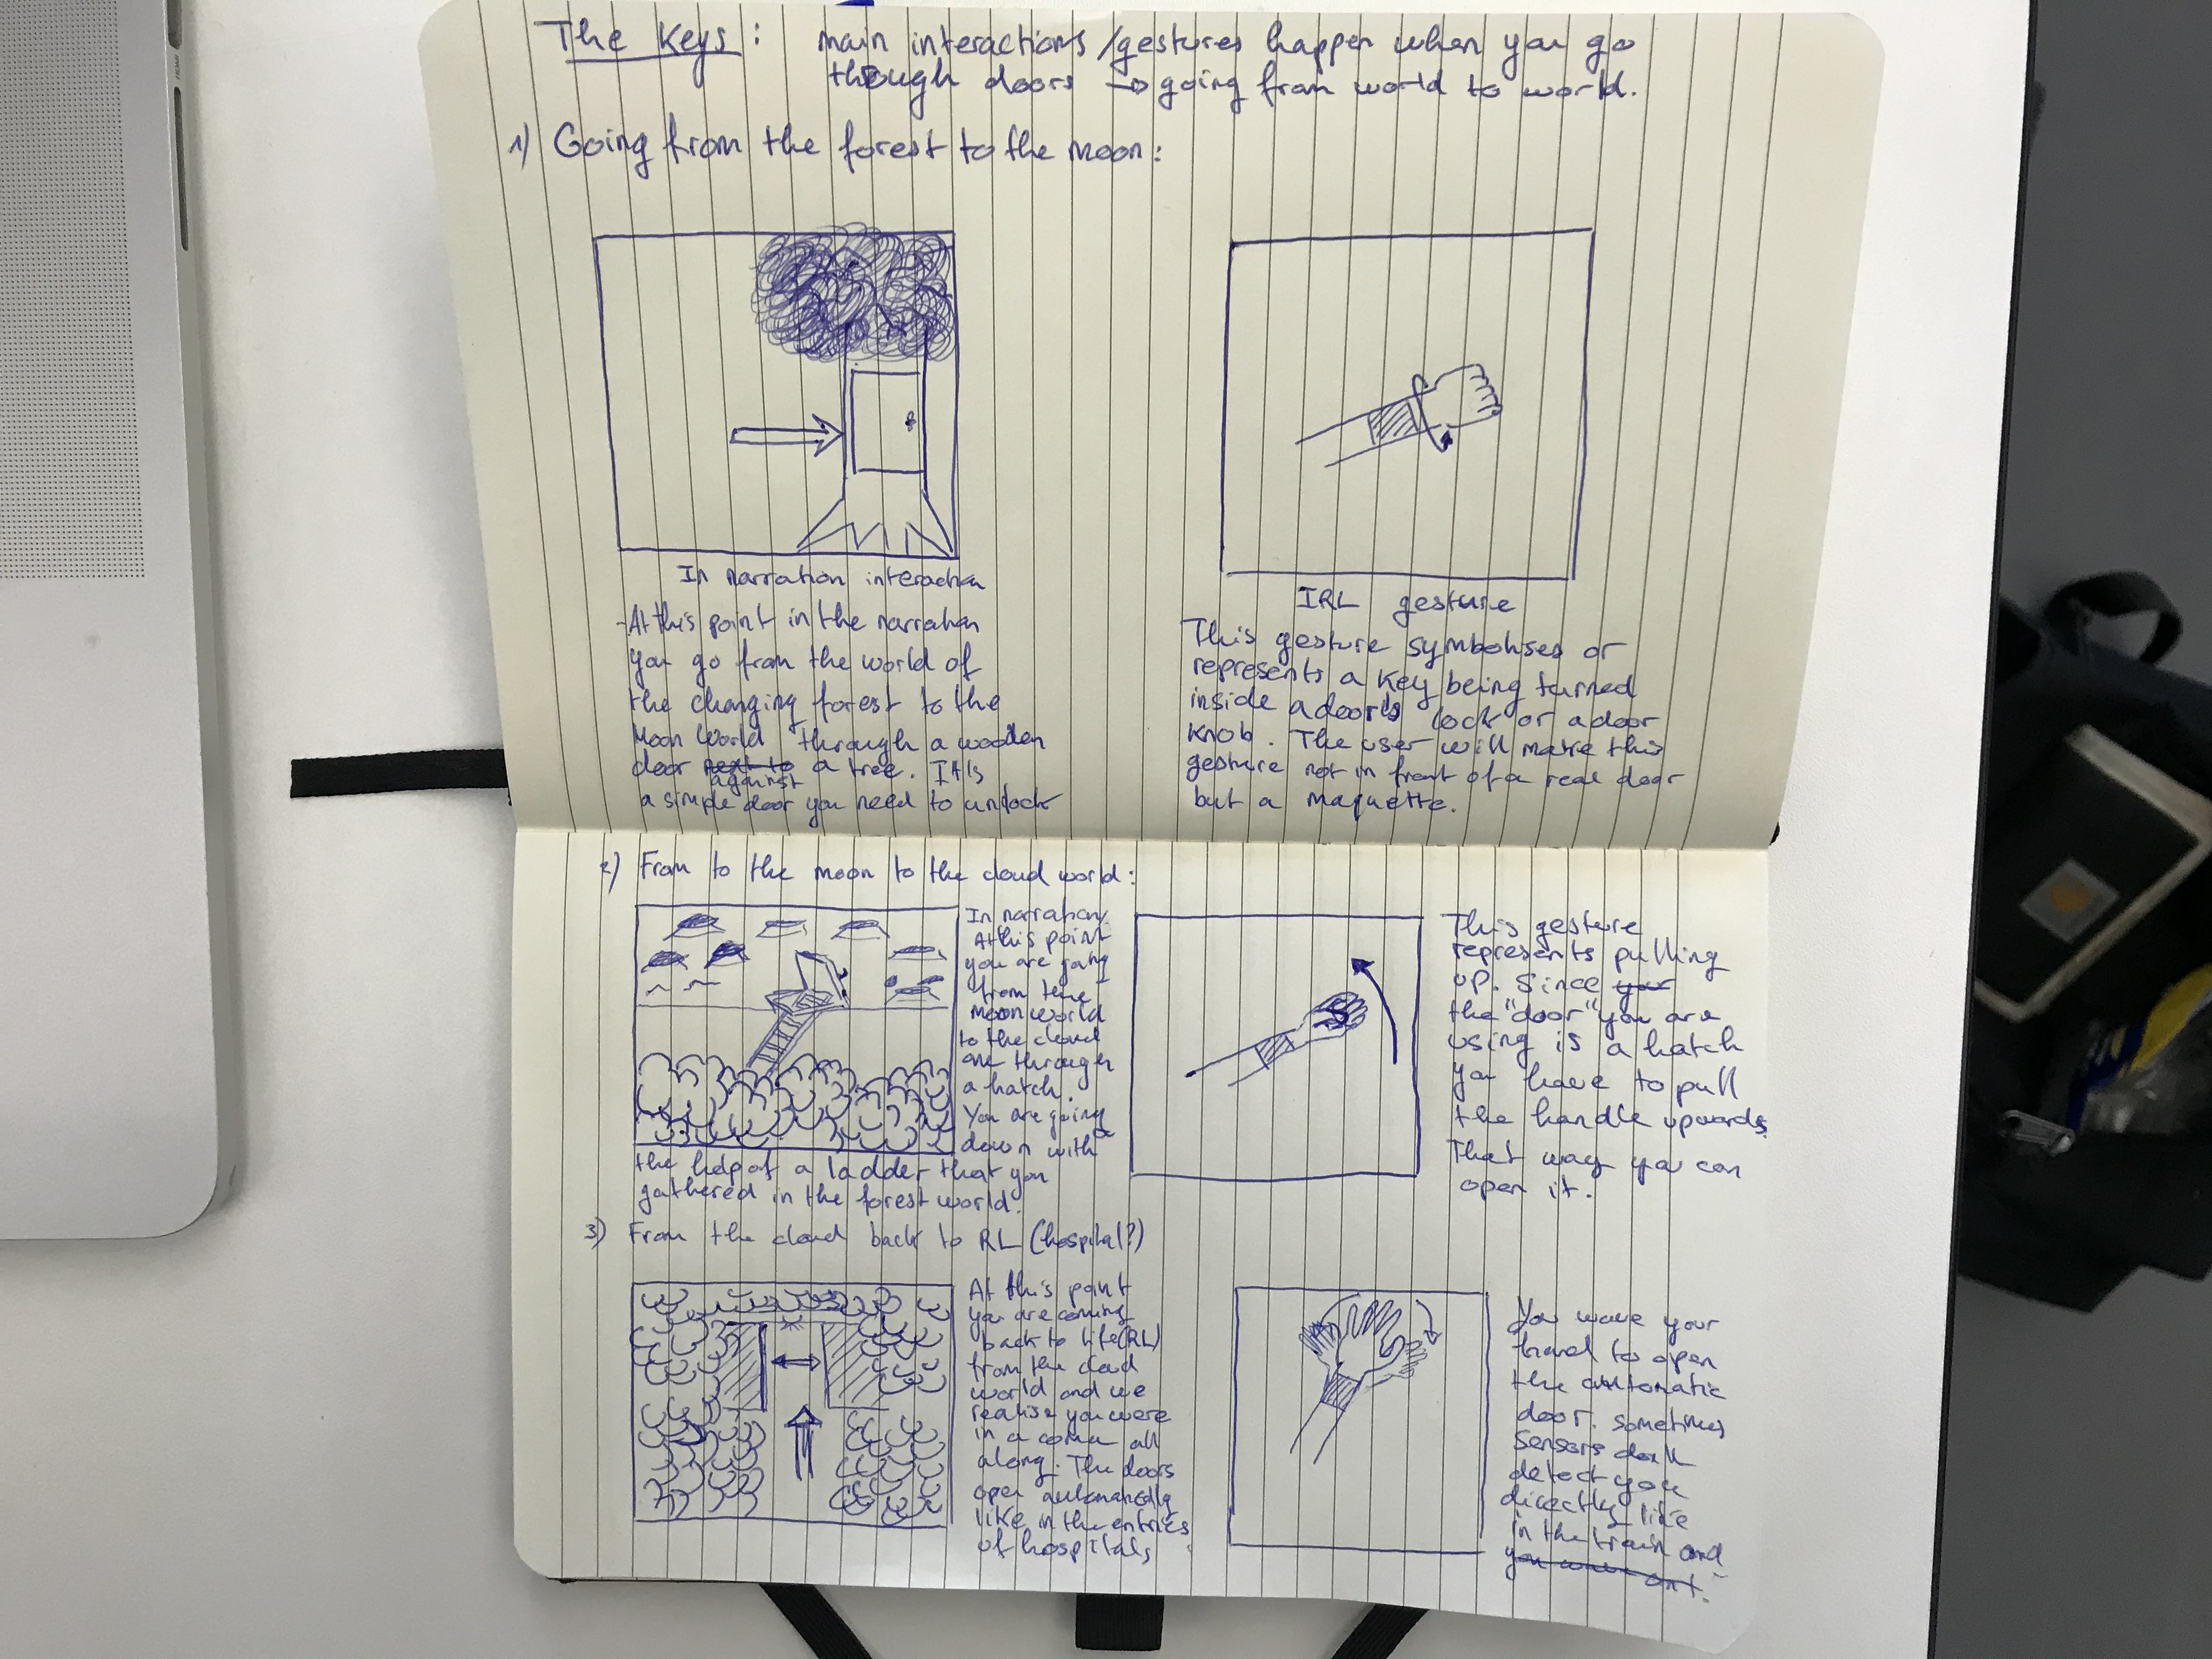 The Keys: main interactions/gestures happen when you go
through doors → going from world to world.
1) Going from the forest to the moon:
In narration interaction
- At this point in the narration
you go from the world of
the changing forest to the
Moon World through a wooden
door next to against a tree. It is
a simple door you need to unlock
IRL gesture
This gesture symbolises or
represents a key being turned
inside a doors lock or a door
knob. The user will make this
gesture not in front of a real door
but a maquette.
2) From to the moon to the cloud world:
In narration:
At this point
you are going
from the
moon world
to the cloud
one through
a hatch.
You are going
down with
the help of a ladder that you
gathered in the forest world.
This gesture
represents pulling
up. Since your
the "door" you are
using is a hatch
you have to pull
the handle upwards.
That way you can
open it.
3) From the cloud back to RL (hospital?)
At this point
you are coming
back to life (RL)
from the cloud
world and we
realise you were
in a coma all
along. The doors
open automatically
like in the entries
of hospitals.
You wave your
hand to open
the automatic
door. Sometimes
sensors don't
detect you
directly like
in the train and
HDMI